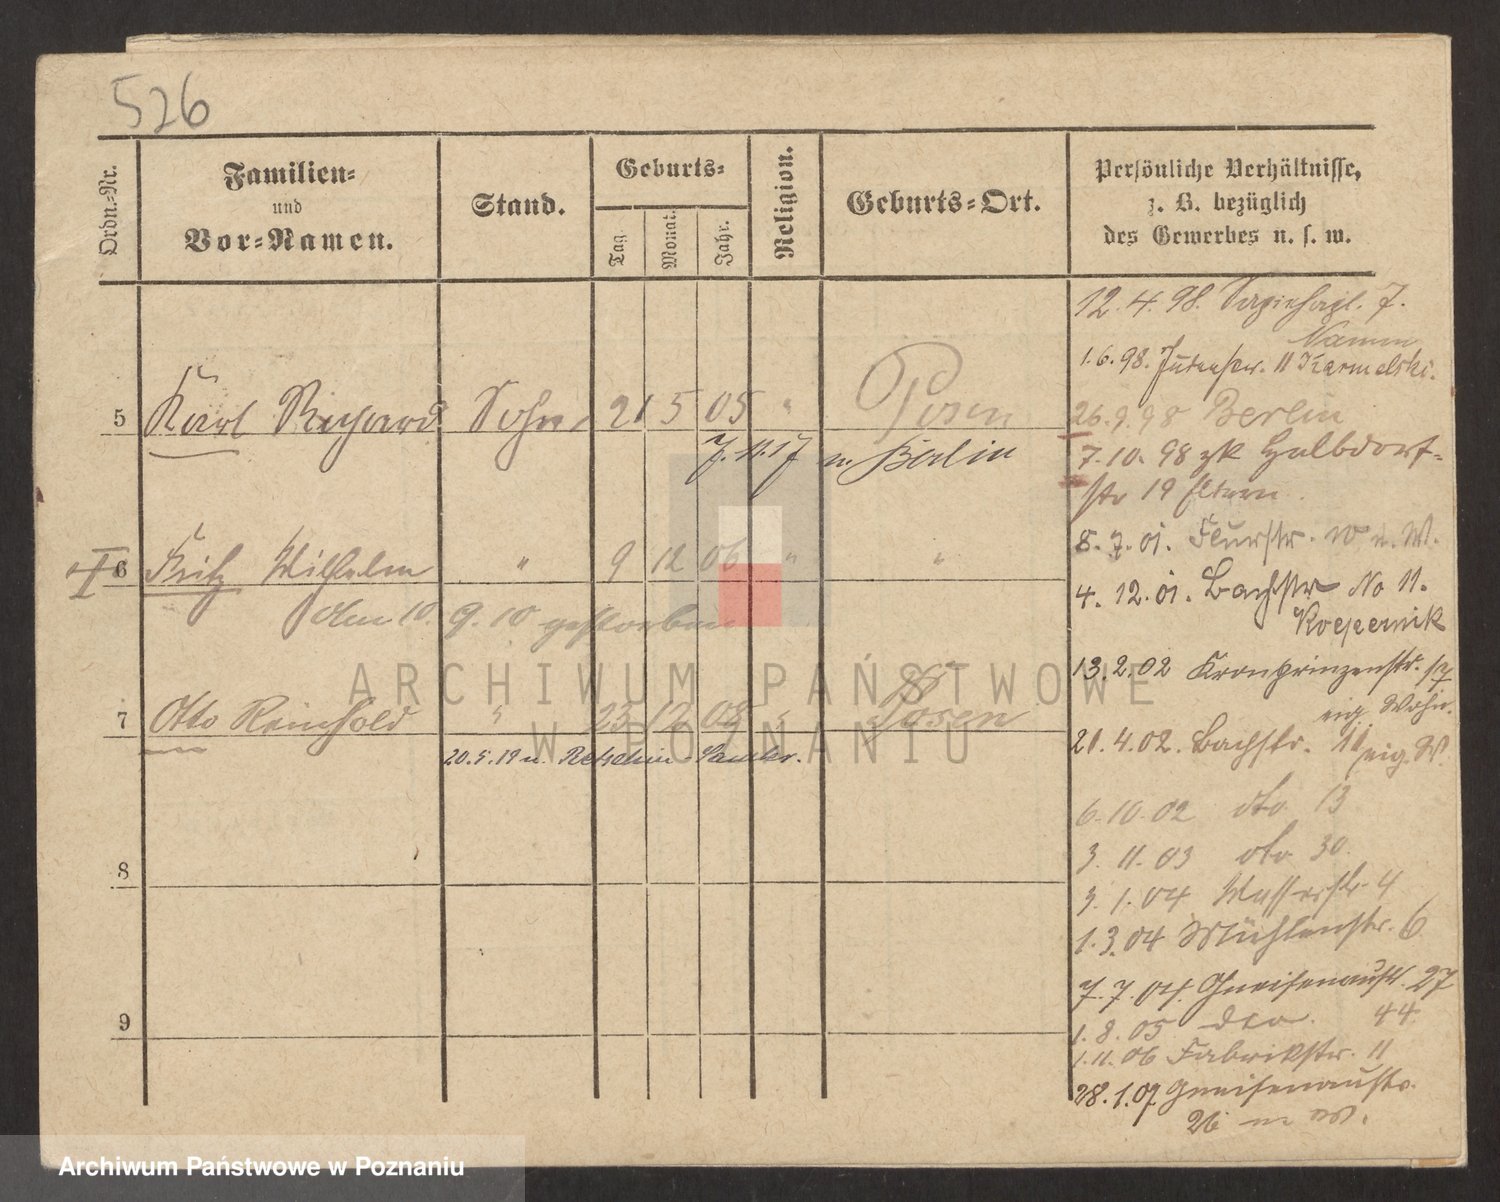 526
Ordn.-Nr.
Familien-
und
Vor-Namen.
Stand.
Geburts-
Tag
Monat.
Jahr.
Religion.
Geburts-Ort.
Persönliche Verhältnisse,
z. B. bezüglich
des Gewerbes u. s. w.
12.4.98. 7.
1.6.98. Judenstr. 11 Karmelski.
5 Karl Richard Sohn 21 5 05 " Posen
7.11.17 n. Berlin
26.9.98 Berlin
7.10.98 zk Halbdorf-
str 19 Eltern
8.7.01. Flurstr. 10 W.
† 6 Fritz Wilhelm " 9 12 06 " "
den 10. 9. 10 gestorben
4.12.01. Bachstr No 11.
Koepernik
13.2.02 Kronprinzenstr.
eig. Wohn.
7 Otto Reinhold " 23 12 08 " Posen
20.5.19 n. Retschin Samter.
21.4.02. Bachstr. 11 eig. W.
6.10.02 dto 13
3.11.03 dto 30
3.1.04 Wasserstr. 4
1.3.04 Mühlenstr. 6
8
7.7.04. Gneisenaustr. 27
1.8.05 dto. 44
1.11.06 Fabrikstr. 11
28.1.07 Gneisenaustr.
26 W.
9
ARCHIWUM PAŃSTWOWE
W POZNANIU
Archiwum Państwowe w Poznaniu